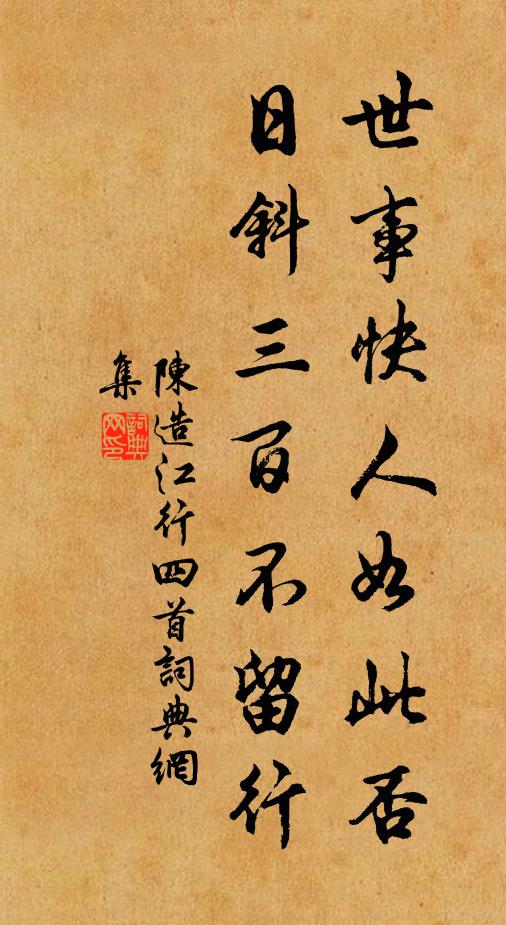 世事快人如此否
日斜三百不留行
陳造江行四首詞典網
集
詞典網印